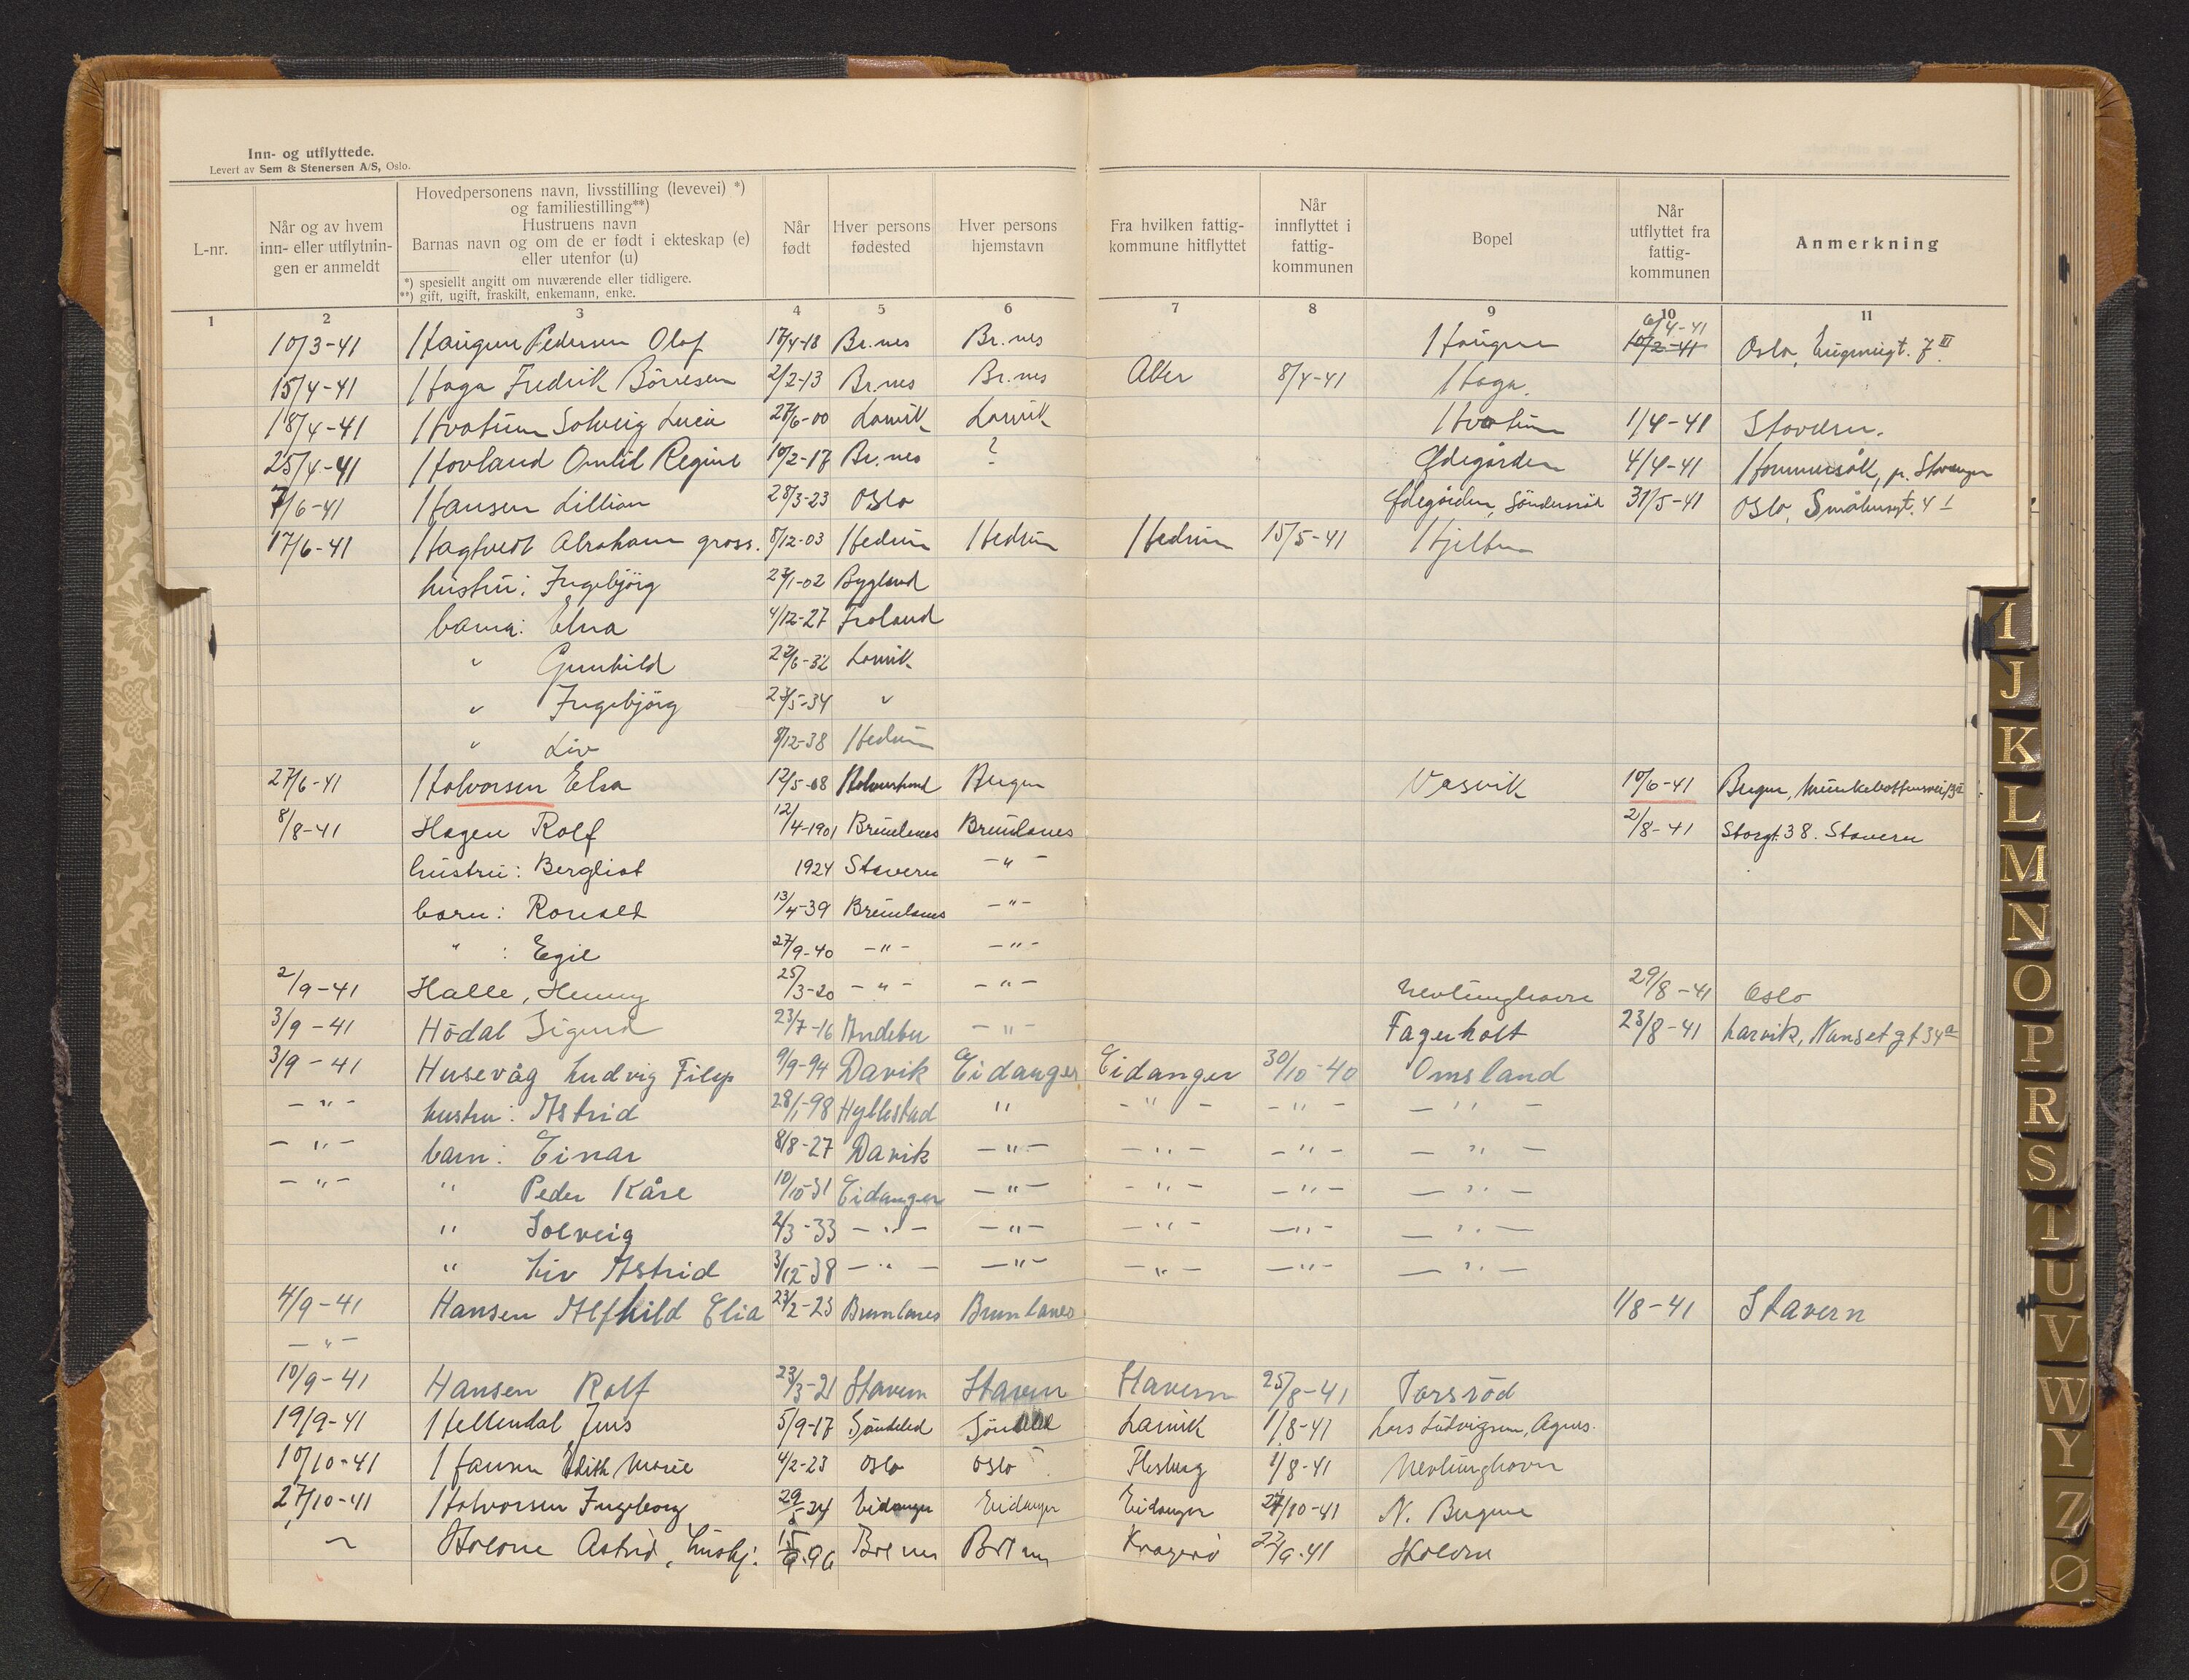 Inn- og utflyttede.
Levert av Sem & Stenersen A/S, Oslo.
L-nr.
Når og av hvem inn- eller utflytnin- gen er anmeldt
Hovedpersonens navn, livsstilling (levevei) *) og familiestilling**) Hustruens navn Barnas navn og om de er født i ekteskap (e) eller utenfor (u)
*) spesiellt angitt om nuværende eller tidligere.
**) gift, ugift, fraskilt, enkemann, enke.
Når født
Hver persons fødested
Hver persons hjemstavn
Fra hvilken fattig- kommune hitflyttet
Når innflyttet i fattig- kommunen
Bopel
Når utflyttet fra fattig- kommunen
Anmerkning
1 2 3 4 5 6 7 8 9 10 11
6/4-41
10/3-41 Haugen Pedersen Olaf 17/4-18 Br.nes Br.nes Haugen 10/2-41 Oslo, Eugeniigt. 7 III
15/4-41 Haga Fredrik Börresen 2/2-13 Br.nes Br.nes Aker 8/4-41 Haga.
18/4-41 Hvatum Solveig Lucie 27/6-00 Larvik Larvik Hvatum 1/4-41 Stavern.
25/4-41 Hovland Regine 10/2-17 Br.nes ? Ødegården 4/4-41 Hommersåk, p. Stavanger
7/6-41 Hansen Lillian 28/3-23 Oslo Ødegården, 31/5-41 Oslo, 4 I
17/6-41 Hagtvedt Abraham gross. 8/12-03 Hedrum Hedrum Hedrum 15/5-41 Hjelten
hustru: Ingebjörg 23/1-02 Bygland
barna: Elna 4/12-27 Froland
" Gunhild 22/6-32 Larvik
" Ingebjörg 23/5-34 "
" Liv 8/12-38 Hedrum
27/6-41 Halvorsen Elsa 12/5-08 Bergen Vasvik 10/6-41 Bergen, Munkebottensvei
8/8-41 Hagen Rolf 12/4-1901 Brunlanes Brunlanes 2/8-41 Storgt. 38. Stavern
hustru: Bergliot 1924 Stavern -"-
barn: Ronald 13/4-39 Brunlanes -"-
" : Egil 27/9-40 -"- -"-
2/9-41 Halle, Henny 25/3-20 -"- -"- Nevlunghavn 29/8-41 Oslo
3/9-41 Hödal Sigurd 23/7-16 Andebu -"- Fagerholt 23/8-41 Larvik, Nansetgt 34a
3/9-41 Husevåg Ludvig Filip 9/9-94 Davik Eidanger Eidanger 30/10-40 Omsland
-"- hustru: Astrid 28/1-98 Hyllestad " -"- -"- -"-
-"- barn: Einar 8/8-27 Davik -"- -"- -"- -"-
-"- " Peder Kåre 10/10-31 Eidanger -"- -"- -"- -"-
" Solveig 2/3-33 -"- -"- -"- -"- -"-
" Liv Astrid 3/12-38 -"- -"- -"- -"- -"-
4/9-41 Hansen Alfhild Elia 23/2-23 Brunlanes Brunlanes 1/8-41 Stavern
-"-
10/9-41 Hansen Rolf 23/3-21 Stavern Stavern Stavern 25/8-41 Torsröd
19/9-41 Hellendal Jens 5/9-17 Söndeled Söndeled Larvik 1/8-41 Lars Ludvigsen, Agnes.
10/10-41 Hansen Edith Marie 4/2-23 Oslo Oslo Flesberg 1/8-41 Nevlunghavn
27/10-41 Halvorsen Ingeborg Eidanger Eidanger Eidanger 27/10-41 N. Bergene
Astrid, 96 Kragerö 22/9.41
I
J
K
L
M
N
O
P
R
S
T
U
V
W
Y
Z
Ø